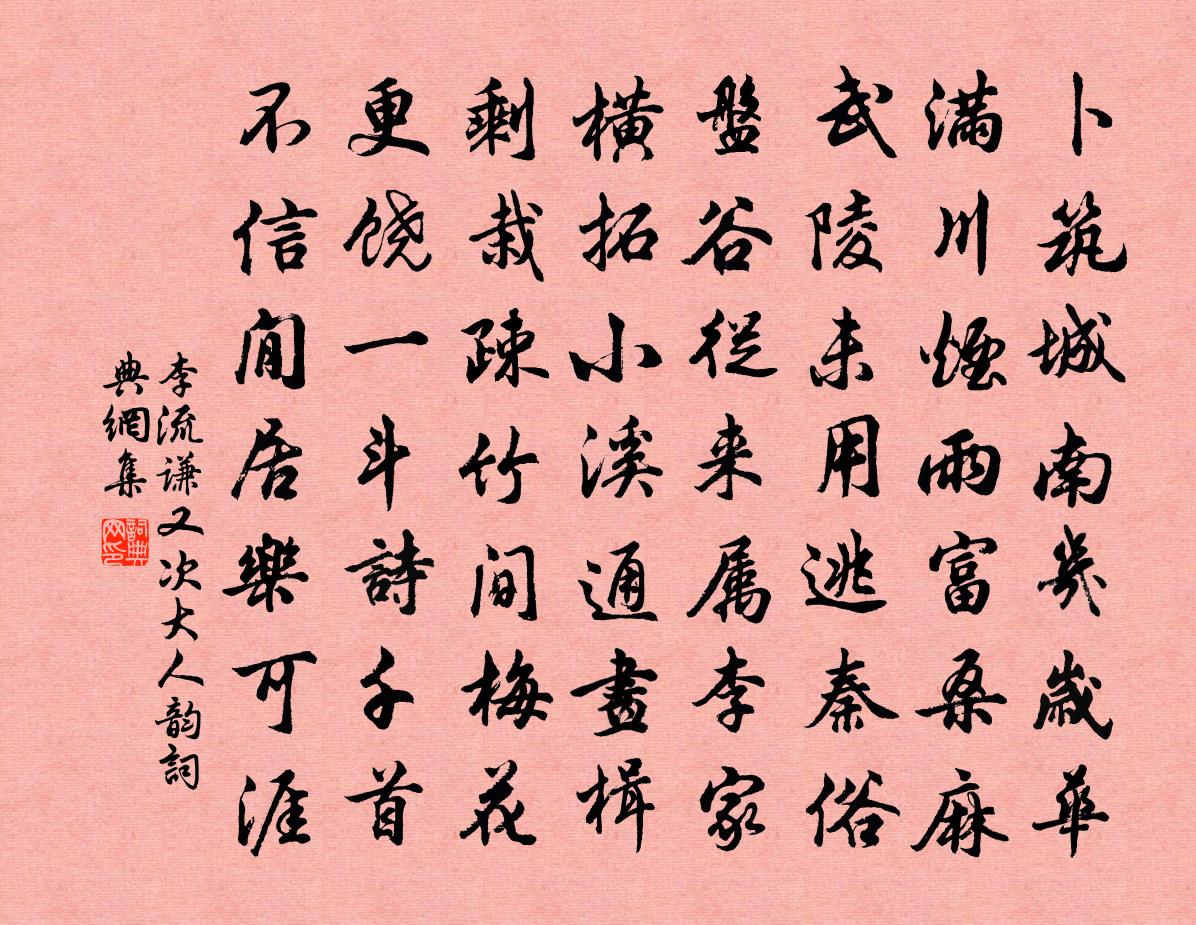 卜筑城南幾歲華
滿川煙雨富桑麻
武陵未用逃秦俗
盤谷從来属李家
橫拓小溪通畫楫
剩栽疎竹間梅花
更饶一斗詩千首
不信閒居樂可涯
李流谦又次大人韵詞
典網集
詞典網印